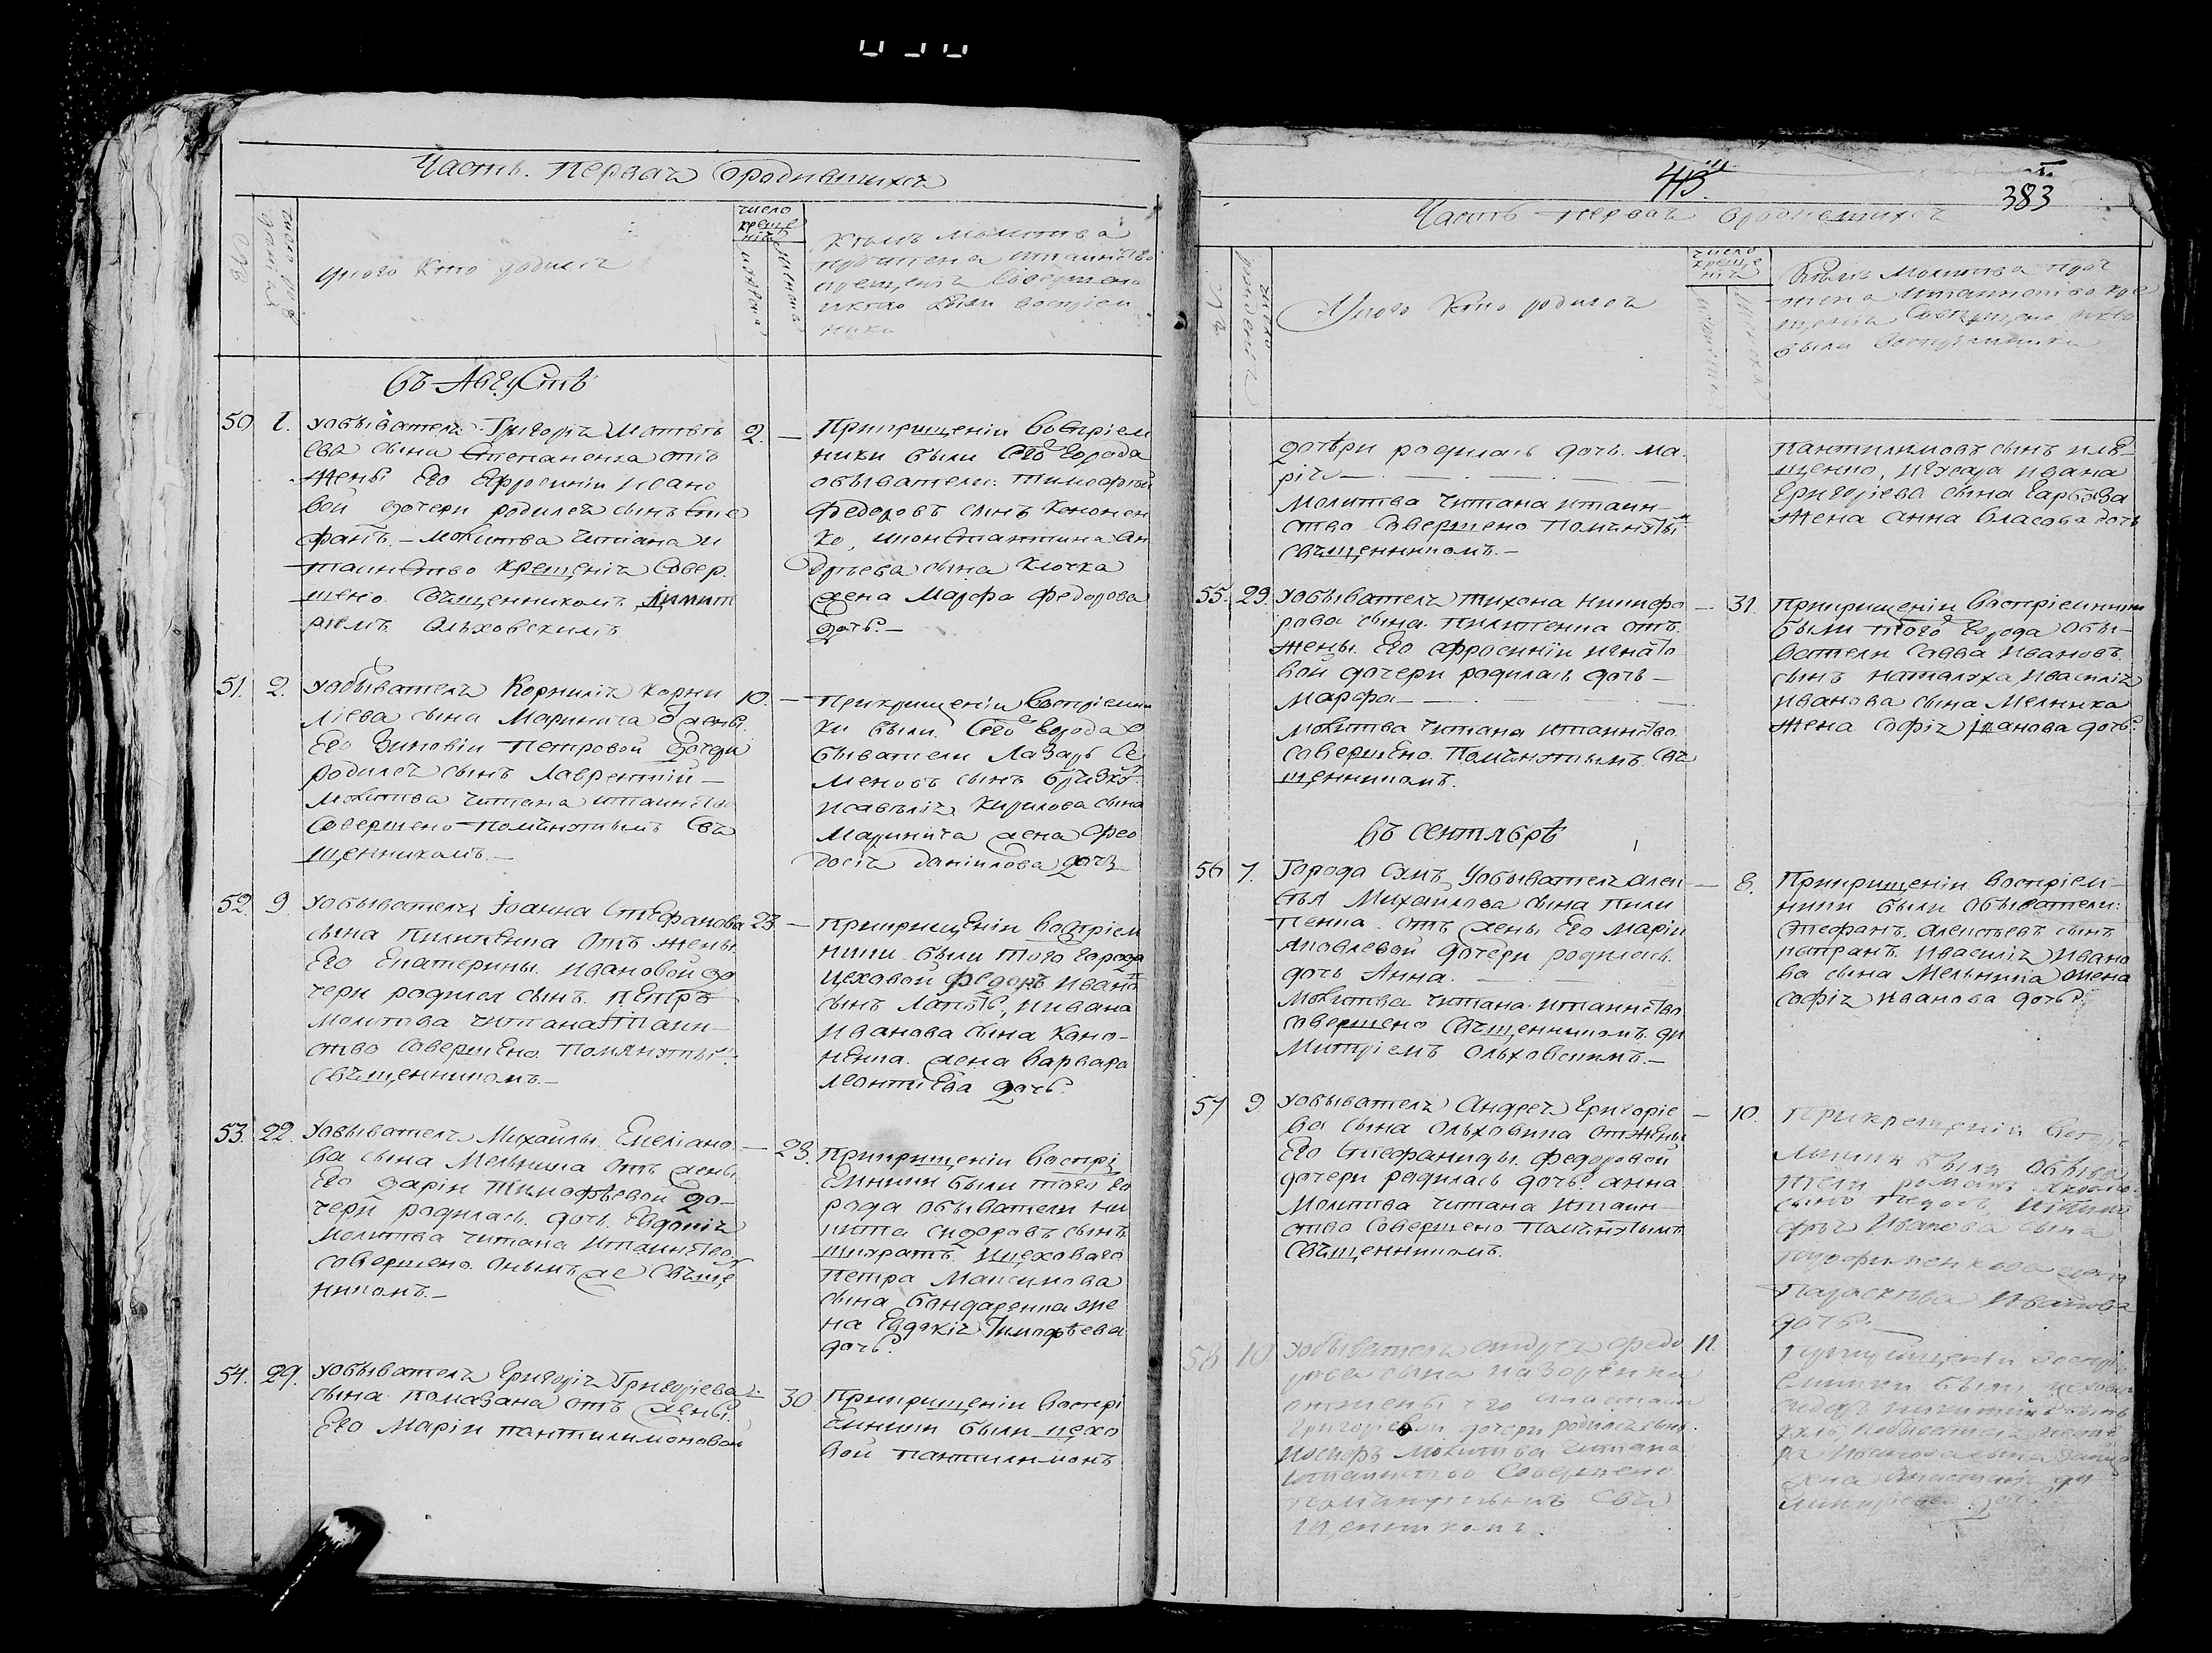 Часть первая ородившихся
№
число рождения
Укого кто родился
число
креще
ния
мужеска
женска
Кѣмъ молитва
читана итаинство
крещения совершено
икто были восприем
ники
Въ Августѣ
50. 1. Уобывателя Григорія Матвѣ
ева сына Степаненка отъ
жены Его Ефросиніи Ивано
вой дочери родился сынъ Сте
фанъ. — Молитва читана и
таинство крещенія Совер
шено Священникомъ Димит
ріемъ Ольховскимъ
2. — Прикрищеніи Воспріем
ники были Сего Города
обыватели: Тимофѣй
Федоровъ сынъ Кононен
ко, иконстантина Ан
дрѣева сына Клочка
жена Марфа Федорова
дочь. —
51. 2. Уобывателя Корнилія Корни
ліева сына Маринича о жены
Его Зиновіи Петровой дочери
родился сынъ Лаврентій —
Молитва читана итаинство
Совершено помянутымъ Свя
щенникомъ. —
10. — Прикрищеніи Воспріемни
ки были Сего Города о
быватели Лазарь Се
меновъ сынъ
Исавелія Кирилова сына
Маринича жена Фео
досія Данилова дочь
52. 9. Уобывателя Іоанна Стефанова
сына Пилипенка отъ жены
Его Екатерины Ивановой до
чери родился сынъ Петръ
Молитва читана итаин—
ство совершено помянутымъ
Священникомъ. —
23 — Прикрищеніи Воспріем
ники были того города
Цеховой Федоръ Ивановъ
сынъ Ивана
Иванова сына Коно—
ненка жена Варвара
Леонтіева дочь.
53. 22. Уобывателя Михайлы Емеліано
ва сына Мельника отъ жены
Его Дарии Тимофѣевой до—
чери родилась дочь Евдокія
Молитва читана итаинство
совершено онымъ же Свяще
никомъ. —
— 23. Прикрищеніи Воспрі
емники были того го
рода обыватели Ни
кита Сидоровъ сынъ
ицеховаго
Петра Максимова
сына Бондаренка же
на Евдокія Тимофѣева
дочь.
54. 29. Уобывателя Григорія Григоріева
сына Помазана отъ жены
Его Маріи Пантилимоновой
30 Прикрищеніи Воспрі
емники были цехо
вой Пантилимонъ
45
383
Часть первая ородившихся
число
рожденія
Укого кто родился
число
креще
нія
Кѣмъ молитва чи
тана итаинство кре
щенія Совершено икто
были Воспріемники
дочери родилась дочь Ма
рія —
Молитва читана итаин—
ство Совершено помянутымъ
Священникомъ. —
Пантилимовъ сынъ
Ивана
Григоріева сына
жена Анна Власова дочь
55. 29. Уобывателя Тихона Никифо
рова сына Пилипенка отъ
жены Его Афросиніи Игнато
вой дочери родилась дочь —
Марфа —
Молитва читана итаинство
совершено помянутымъ Свя
щенникомъ.
— 31. Прикрищеніи Воспріемники
были того Города обы—
ватели Савва Ивановъ
сынъ Наталуха Ивасилія
Иванова сына Мельника
жена Софія Иванова дочь.
Въ Сентябрѣ
56 7. Города Сумъ Уобывателя Алек
сѣя Михайлова сына Пили
пенка отъ жены Его Маріи
Яковлевой дочери родилась
дочь Анна. —
Молитва читана итаинство
совершено Священникомъ Ди
митріемъ Ольховскимъ. —
— 8. Прикрищеніи Воспріем—
ники были обыватели:
Стефанъ Алексѣевъ сынъ
Ивасилія Ивано
ва сына Мельника жена
Софія Иванова дочь.
57 9 Уобывателя Андрея Григоріе
ва сына Ольховика отжены
Его Стефаниды Федоровой
дочери родилась дочь Анна
Молитва читана итаин—
ство Совершено помянутымъ
Священникомъ.
— 10. Прикрещеніи Воспріе
мники были обыва
тели Романъ Яковле
сынъ
Иванова сына
жена
Параскева Иванова
дочь. —
58 10 Уобывателя Андрея Федо
рова сына Назаренка
отжены его Анастасіи
Григоріевой дочери родился сынъ
Іосифъ Молитва читана
итаинство Совершено
помянутымъ Свя
щенникомъ.
11. Прикрищеніи Воспрі
емники были цеховой
сынъ
жена Анастасія
дочь